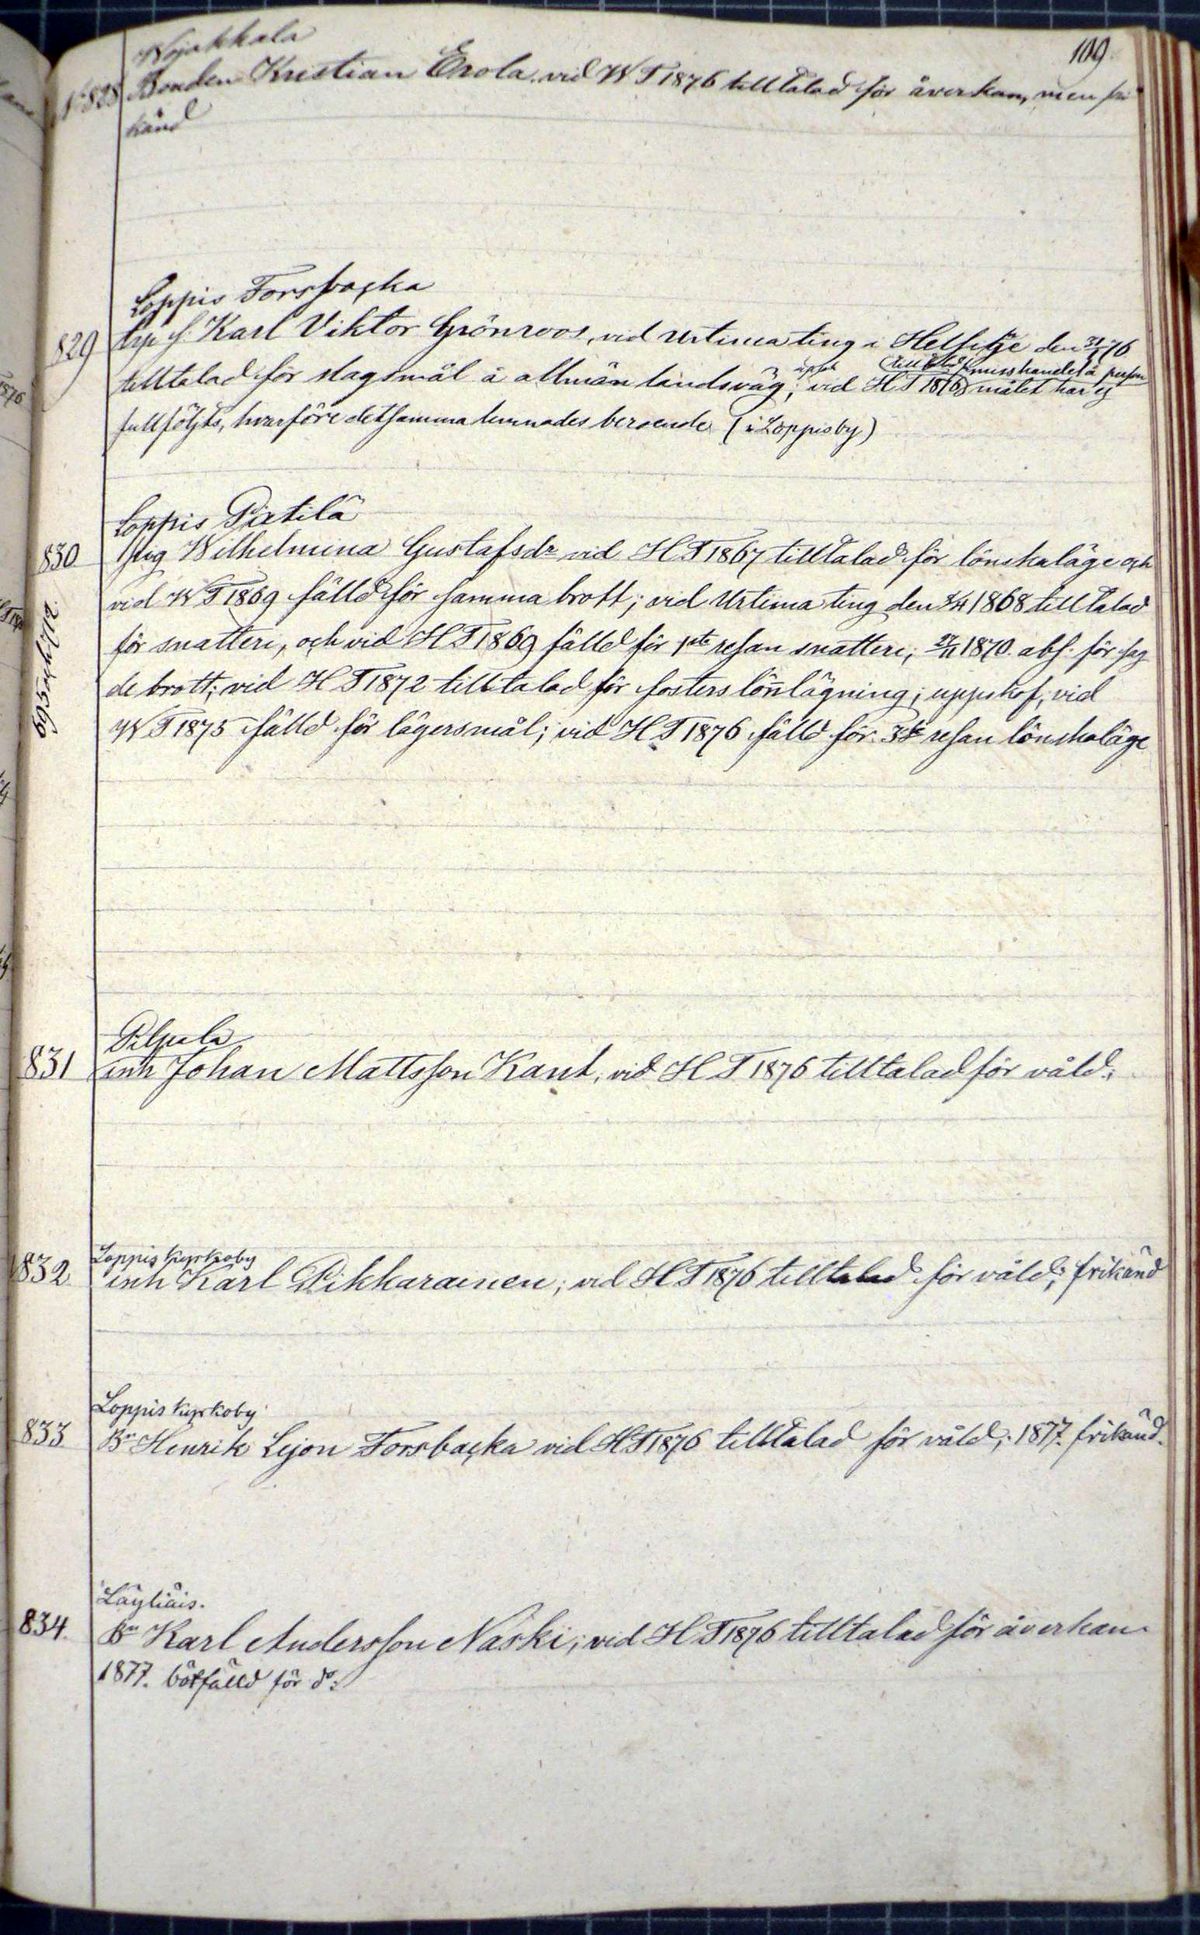 109
Wojakkala
N:o 828 Bonden Kristian Erola, vid W T 1876 tilltalad för åverkan, men fri
känd
Loppis Forsbacka
829 trp s. Karl Viktor Grönroos, vid Urtima ting i Helsitje den 31/5 76
uppsk tilltalad för misshandel å person
tilltalad för slagsmål å allmän landsväg, vid H T 1876 målet har ej
fullföljts, hvarföre detsamma lemnades beroende (i Loppisby)
Loppis Pietilä
830 pig Wilhelmina Gustafsdr vid H T 1867 tilltalad för lönskaläge och
vid W T 1869 fälld för samma brott; vid Urtima ting den 1868 tilltalad
för snatteri, och vid H T 1869 fälld för 1sta resan snatteri; 1870 abs. för sag
de brott; vid H T 1872 tilltalad för fosters lönnlägning, uppskof, vid
W T 1875 fälld för lägersmål; vid H T 1876 fälld för 3dje resan lönskaläge
Pilpala
831 inh Johan Mattsson Kant, vid H T 1876 tilltalad för våld;
Loppis kyrkoby
832 inh Karl Pikkarainen; vid H T 1876 tilltalad för våld; frikänd
Loppis kyrkoby
833 Bn Henrik Lejon Forsbacka vid H T 1876 tilltalad för våld; 1877. frikänd.
Läyliäis.
834. Bn Karl Andersson Naski; vid H T 1876 tilltalad för åverkan
1877. bötfälld för do: